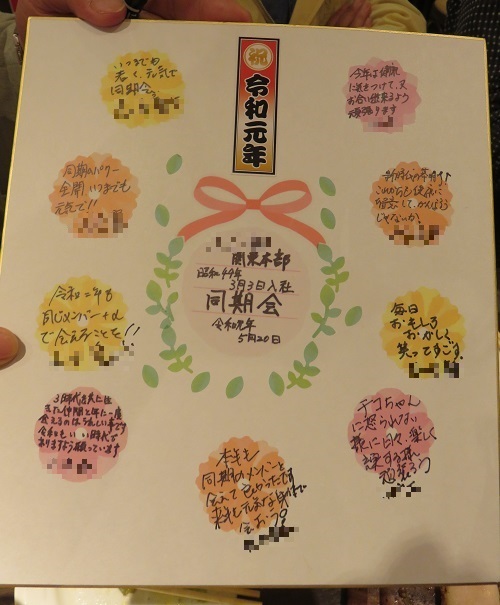 祝
令和元年
いつまでも
若く、元気で
同期会を
今年は健康
に気をつけて、又
お会い出来るよう
頑張ります
同期のパワー
全開いつまでも
元気で!!
これからも健康に
留意して、がんばろう
じゃないか
関東本部
昭和49年
3月3日入社
同期会
令和元年
5月20日
令和二年も
同じメンバー+α
で会えることを!!
毎日
おもしろ
おかしく
笑ってすごす。
3時代
また仲間と年に一度
会えるのはうれしい事です
令和もいい時代で
ありますよう願っています
チコちゃん
に怒られない
様に日々楽しく
過する様
頑張ろう
本年も
同期のメンバーと
会えて良かったです
来年も元気な身体で
会おう!